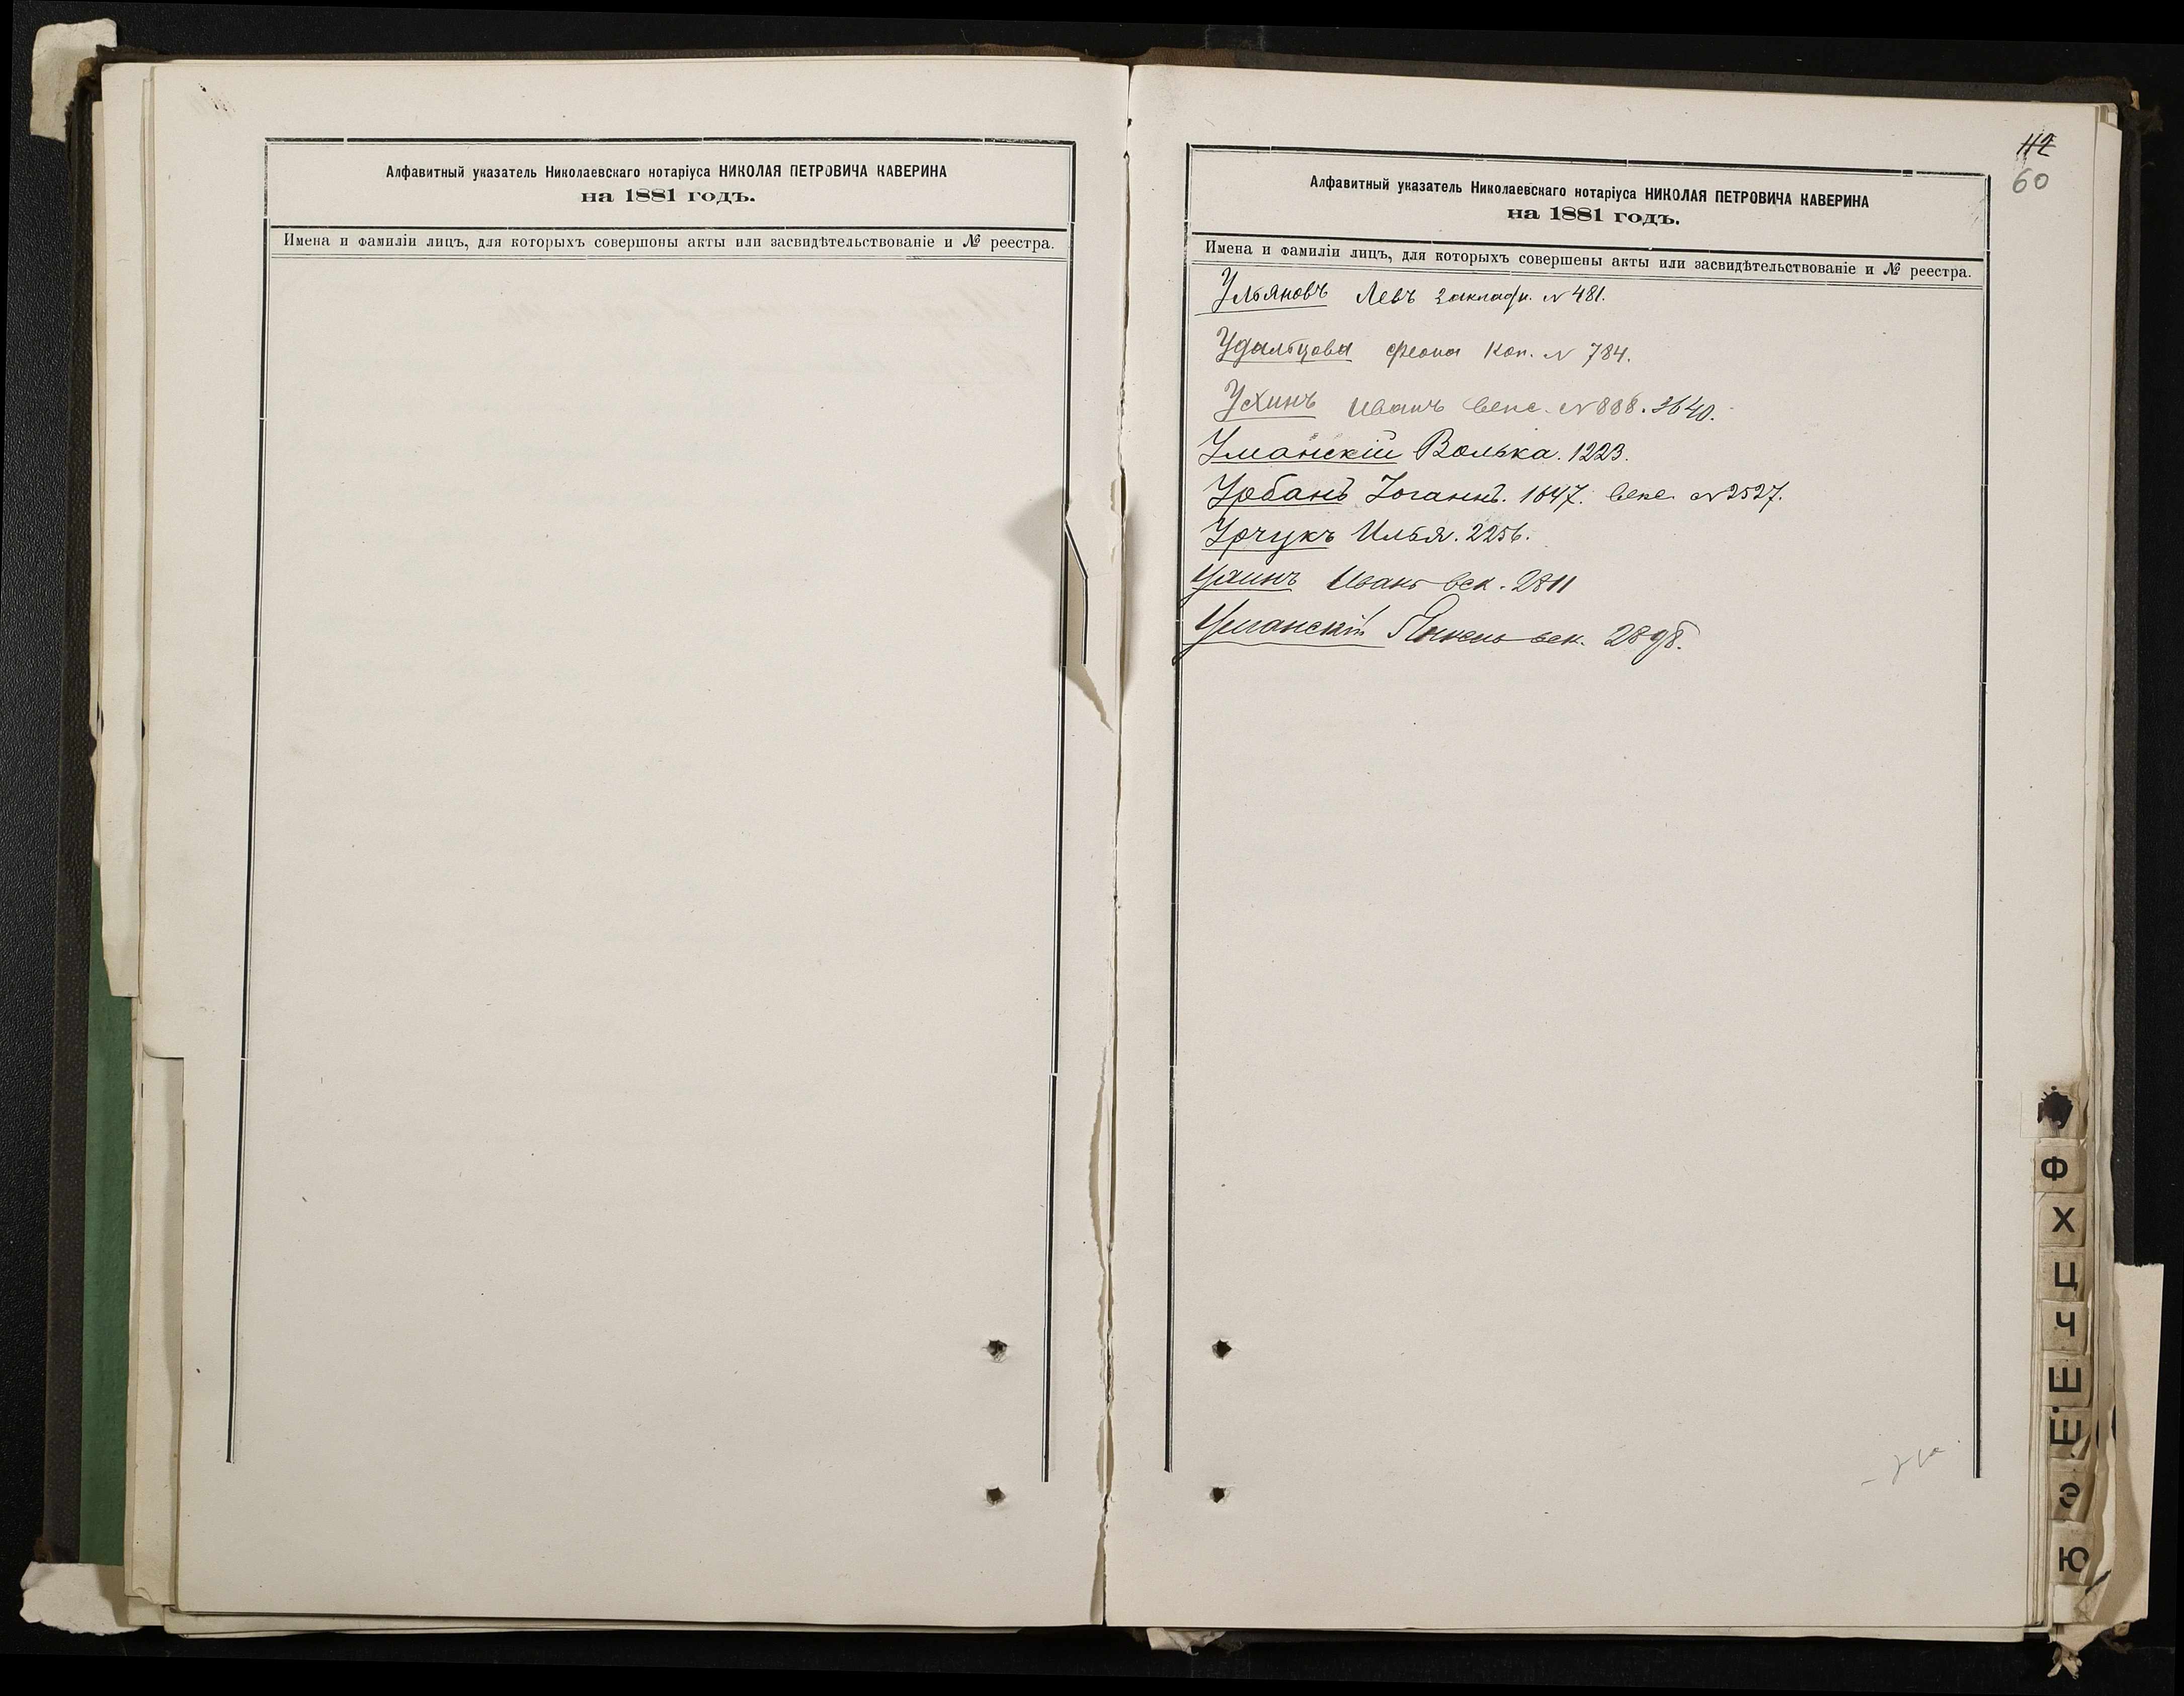 Алфавитный указатель Николаевскаго нотаріуса НИКОЛАЯ ПЕТРОВИЧА КАВЕРИНА
на 1881 годъ.
Имена и фамиліи лицъ, для которыхъ совершоны акты или засвидѣтельствованіе и № реестра.
112
60
Алфавитный указатель Николаевскаго нотаріуса НИКОЛАЯ ПЕТРОВИЧА КАВЕРИНА
на 1881 годъ.
Имена и фамиліи лицъ, для которыхъ совершены акты или засвидѣтельствованіе и № реестра.
Ульяновъ Левъ закладн. № 481.
Удальцова Феона Коп. № 784.
Ухинъ Иванъ векс. № 898. 3640.
Уманскій Волька. 1223.
Урбанъ Іоганнъ. 1647. векс. № 2527.
Урчукъ Илья. 2256.
Ухинъ Иванъ век. 2811
Уманскій Янкель век. 2898.
Ф
Х
Ц
Ч
Ш
Щ
Э
Ю